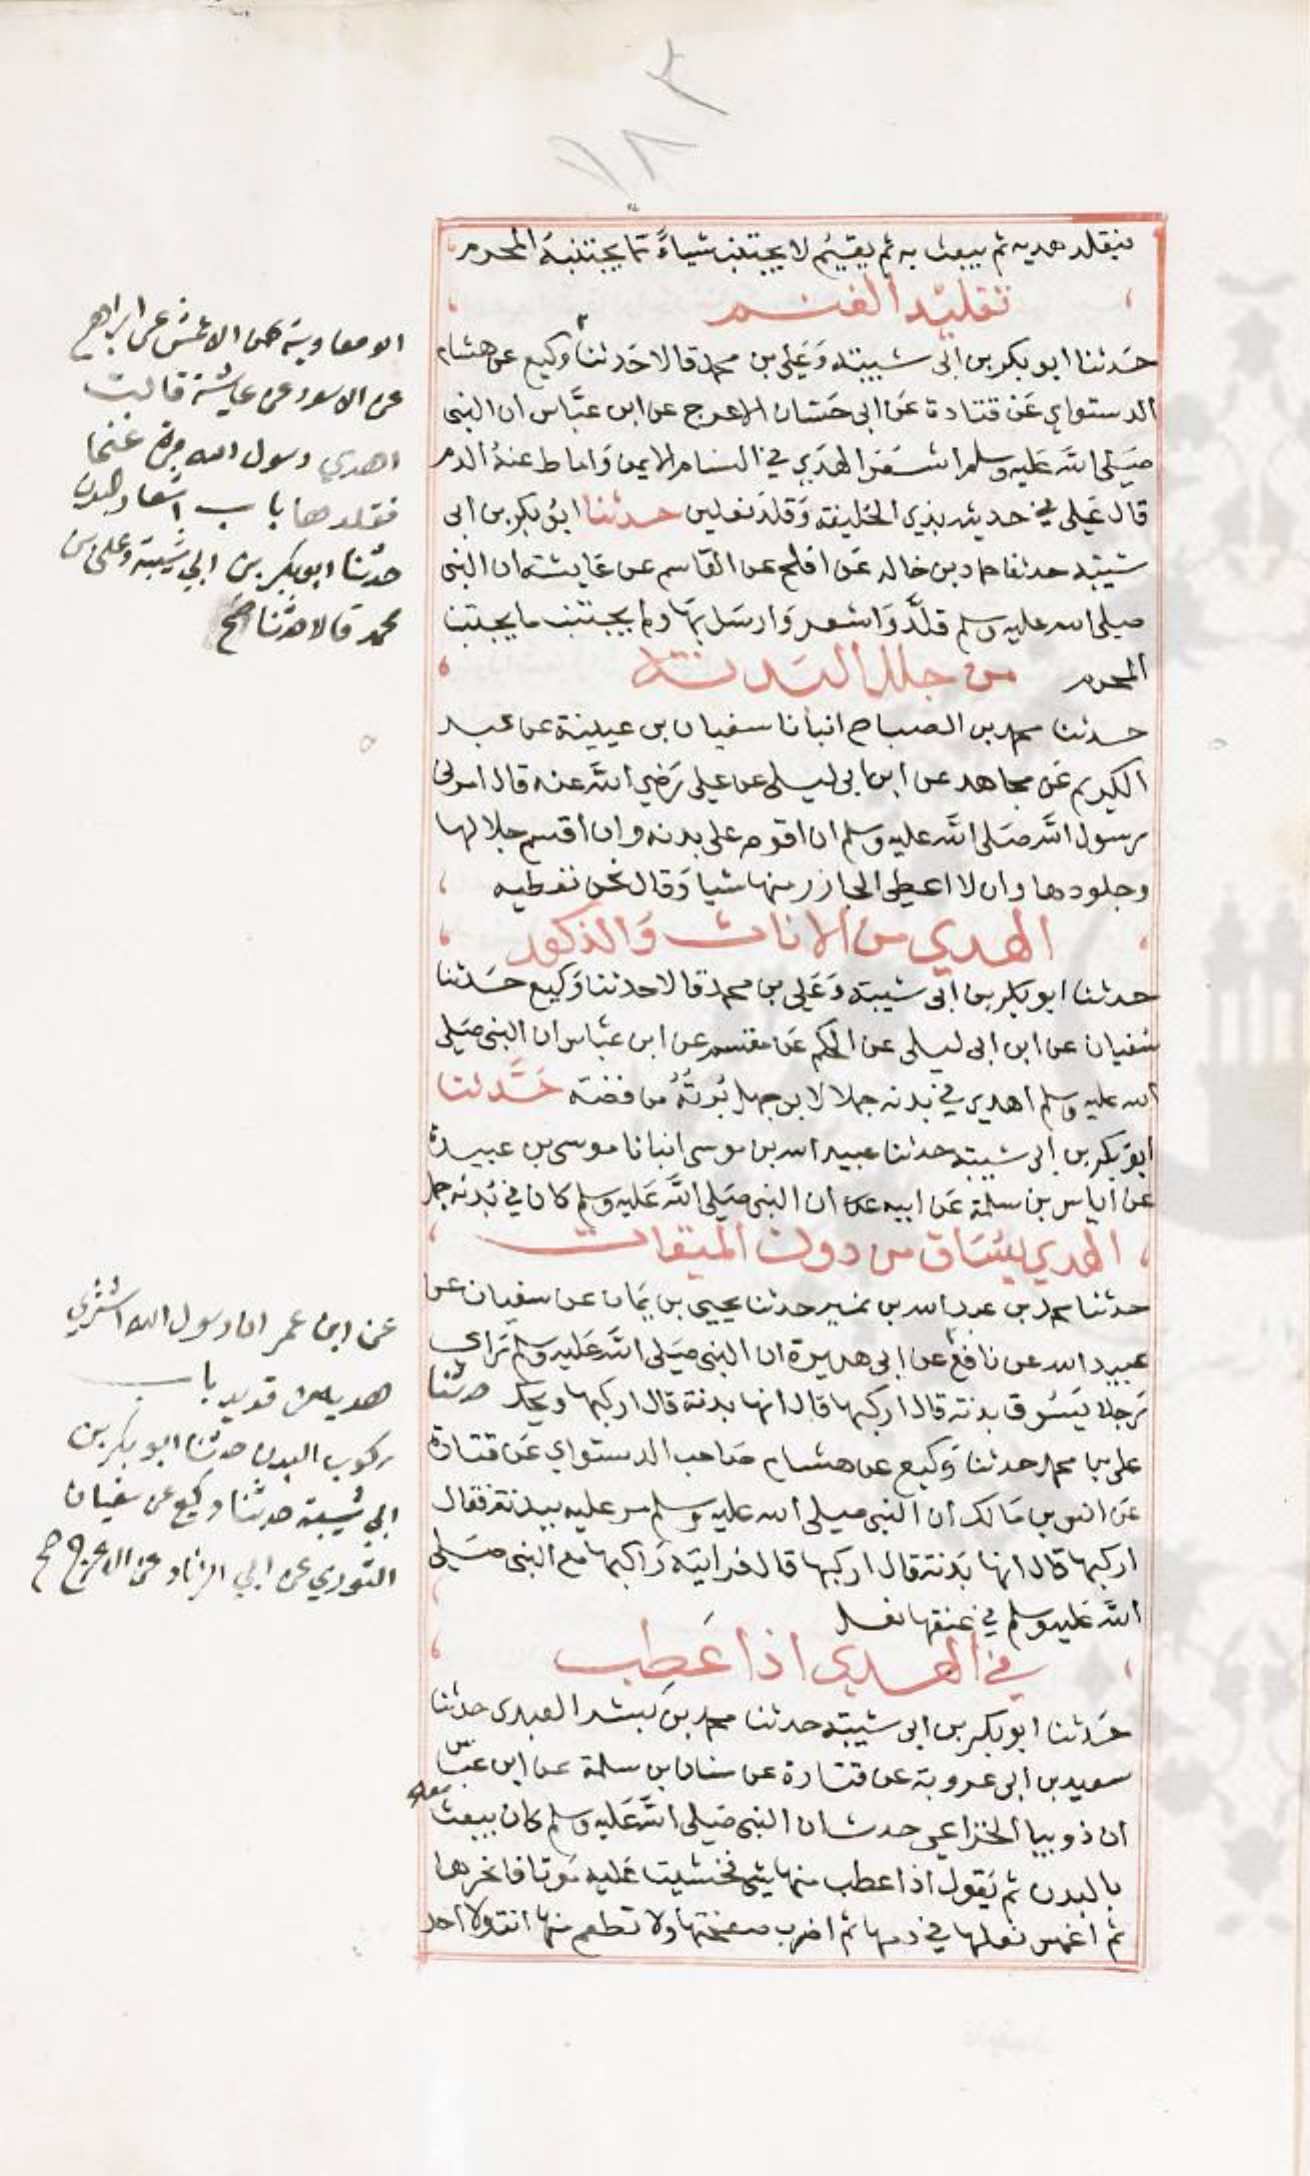 ١٨٢
فيقلد هديه ثم يبعث به ثم يقيم لا يجتنب شياءً مما يجتنبه المحرم
تقليد الغنم
حدثنا ابو بكر بن ابى شيبته وعلى بن محمد قالا حدثنا وكيع عن هشام
الدستواي عن قتادة عن ابى حسان الاعرج عن ابن عباس ان النبى
صلى الله عليه وسلم اشعر الهدي في السنام الايمن واماط عنه الدم
قال على في حديثه بذي الحليفة وقلد نعلين حدثنا ابو بكر بن ابى
شيبته حدثنا حماد بن خالد عن افلح عن القاسم عن عايشته ان النبى
صلى الله عليه وسلم قلد واشعر وارسل بها ولم يجتنب ما يجتنب
المحرم من جلل البدنة
حدثنا محمد بن الصباح انبانا سفيان بن عيينة عن عبد
الكريم عن مجاهد عن ابن ابى ليلى عن على رضي الله عنه قال امرنى
رسول الله صلى الله عليه وسلم ان اقوم على بدنه وان اقسم جلالها
وجلودها وان لا اعطى الجازر منها شيا وقال نحن نعطيه
الهدي من الاناث والذكور
حدثنا ابو بكر بن ابى شيبته وعلى بن محمد قالا حدثنا وكيع حدثنا
سفيان عن ابن ابى ليلى عن الحكم عن مقسم عن ابن عباس ان النبى صلى
الله عليه وسلم اهدى في بدنه جملا لابن جهل برته من فضته حدثنا
ابو بكر بن ابى شيبته حدثنا عبيد الله بن موسى انبانا موسى بن عبيدة
عن اياس بن سلمة عن ابيه ان النبى صلى الله عليه وسلم كان في بدنه جمل
الهدي يساق من دون الميقات
حدثنا محمد بن عبد الله بن نمير حدثنا يحيى بن يمان عن سفيان عن
عبيد الله عن نافع عن ابى هريرة ان النبى صلى الله عليه وسلم راى
رجلا يسوق بدنة قال اركبها قال انها بدنة قال اركبها ويحك حدثنا
على بن محمد حدثنا وكيع عن هشام صاحب الدستواي عن قتادة
عن انس بن مالك ان النبى صلى الله عليه وسلم مر عليه ببدنة فقال
اركبها قال انها بدنة قال اركبها قال فرايته راكبها مع النبى صلى
الله عليه وسلم في عنقها نعل
في الهدي اذا عطب
حدثنا ابو بكر بن ابى شيبته حدثنا محمد بن بشر العبدى حدثنا
سعيد بن ابى عروبة عن قتادة عن سنان بن سلمة عن ابن عباس
ان ذويبا الخزاعى حدث ان النبى صلى الله عليه وسلم كان يبعث معه
بالبدن ثم يقول اذا عطب منها شى فخشيت عليه موتا فانحرها
ثم اغمس نعلها في دمها ثم اضرب صفحتها ولا تطعم منها انت ولا احد
ابو معاوية عن الاعمش عن ابراهيم
عن الاسود عن عايشة قالت
اهدي رسول الله مرة غنما
فقلدها باب اشعار البدن
حدثنا ابو بكر بن ابي شيبة وعلى بن
محمد قالا حدثنا صح
عن ابن عمر ان رسول الله اشتري
هديه من قديد باب
ركوب البدن حدثنا ابو بكر بن
ابي شيبة حدثنا وكيع عن سفيان
الثوري عن ابي الزناد عن الاعرج صح